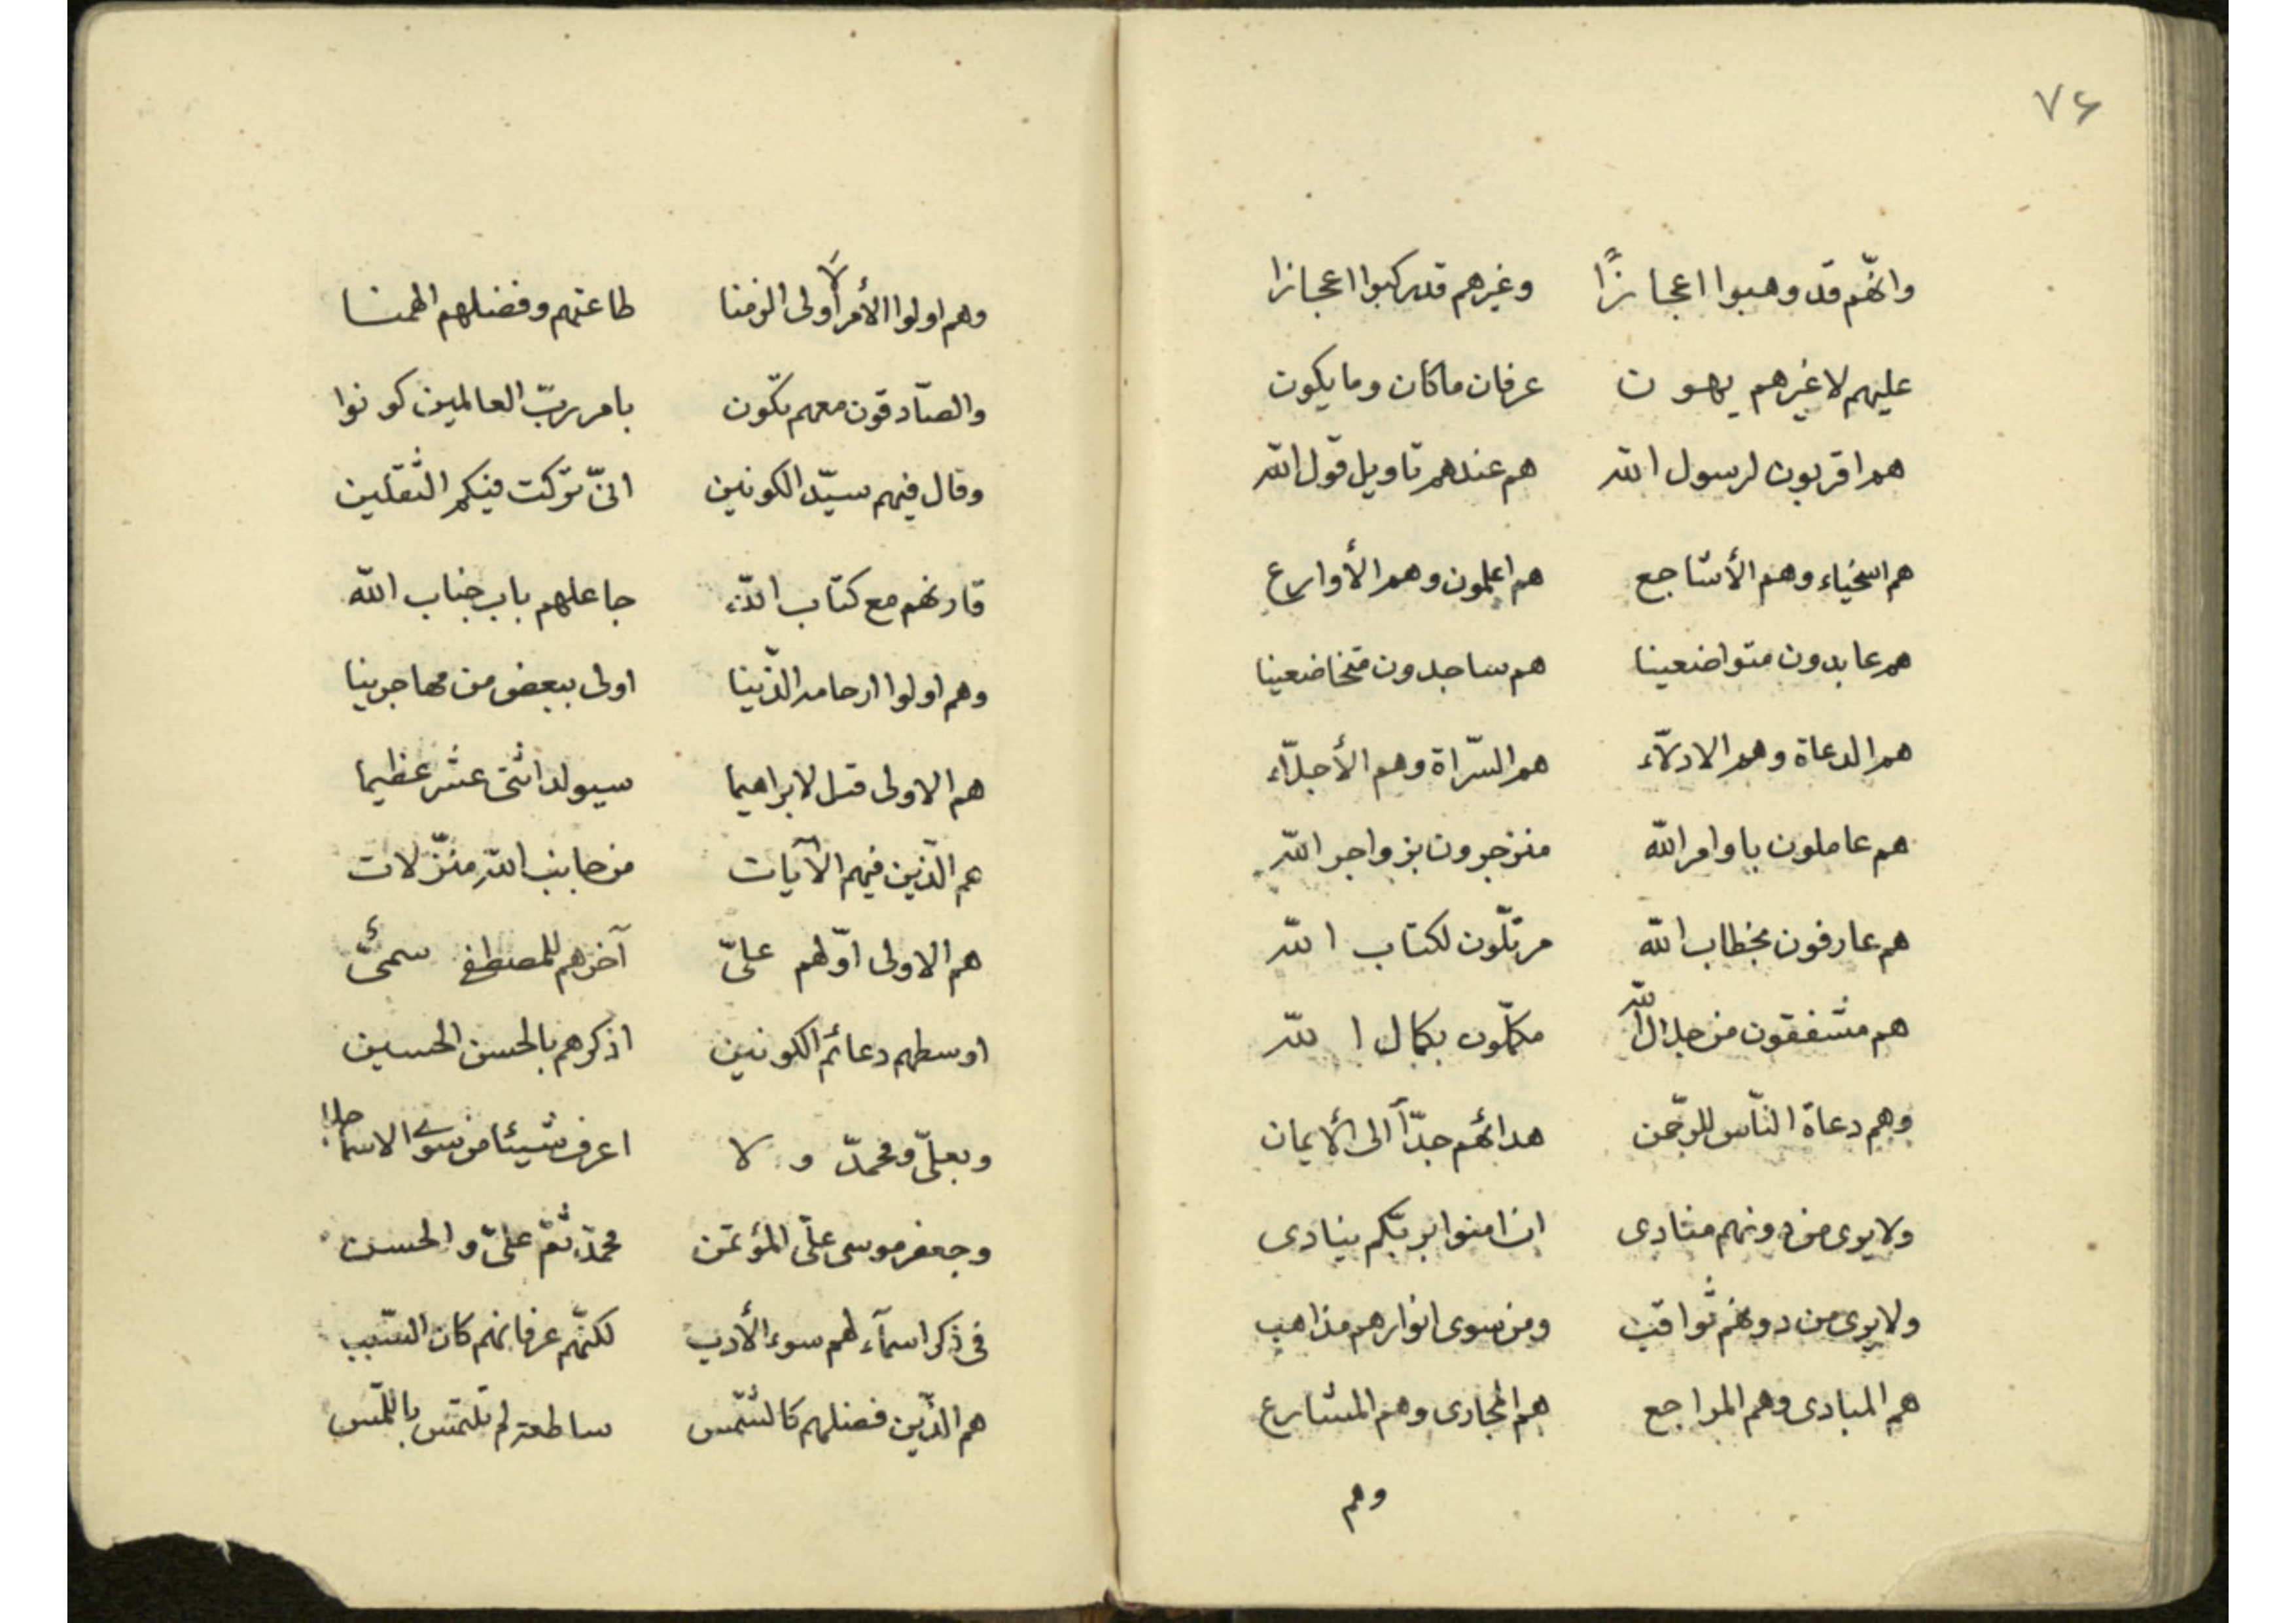 ٧۶
وانّهم قد وهبوا اعجازًا وغيرهم قدركبوا اعجازا
عليهم لا غيرهم يهون عرفان ماكان وما يكون
هم اقربون لرسول الله هم عندهم تاويل قول الله
هم اسخياء وهم الأشاجع هم اعلمون وهم الأوارع
هم عابدون متواضعينا هم ساجدون متخاضعينا
هم الدعاة وهم الادلّاء هم السّراة وهم الأجلّاء
هم عاملون باوامر الله منزجرون بزواجر الله
هم عارفون بخطاب الله مرتّلون لكتاب الله
هم مشفقون من جلال الله مكمّلون بكمال الله
وهم دعاة النّاس للرحّمن هداتهم جدّاً الى الأيمان
ولايرى من دونهم منادى ان امنوا بربّكم ينادى
ولايرى من دونهم ثواقب ومن سوى انوارهم مذاهب
هم المبادى وهم المراجع هم المجارى وهم المشارع
وهم
وهم اولوا الأمر أولى الزمنا طاعتهم وفضلهم الهمنا
والصّادقون معهم تكون بامر ربّ العالمين كونوا
وقال فيهم سيّد الكونين انىّ تركت فيكم الثقلين
قارنهم مع كتاب الله جاعلهم باب جناب الله
وهم اولوا ارحام الذّينا اولى ببعض من مهاجرينا
هم الاولى قيل لابراهيما سيولد اثنى عشر عظيما
هم الذّين فيهم الآيات من جانب الله منزّلات
هم الاولى اوّلهم علىّ آخرهم للمصطفى سمىّ
اوسطهم دعائم الكونين اذكرهم بالحسن الحسين
وبعلىّ ومحمّد ولا اعرف شيئا من سوى الاسما
وجعفر موسى علىّ المؤتمن محمّد ثمّ علىّ والحسن
فى ذكر اسمآء لهم سوء الأدب لكنّهم عرفانهم كان السّبب
هم الذّين فضلهم كالشّمس ساطعة لم تلتمس باللّمس